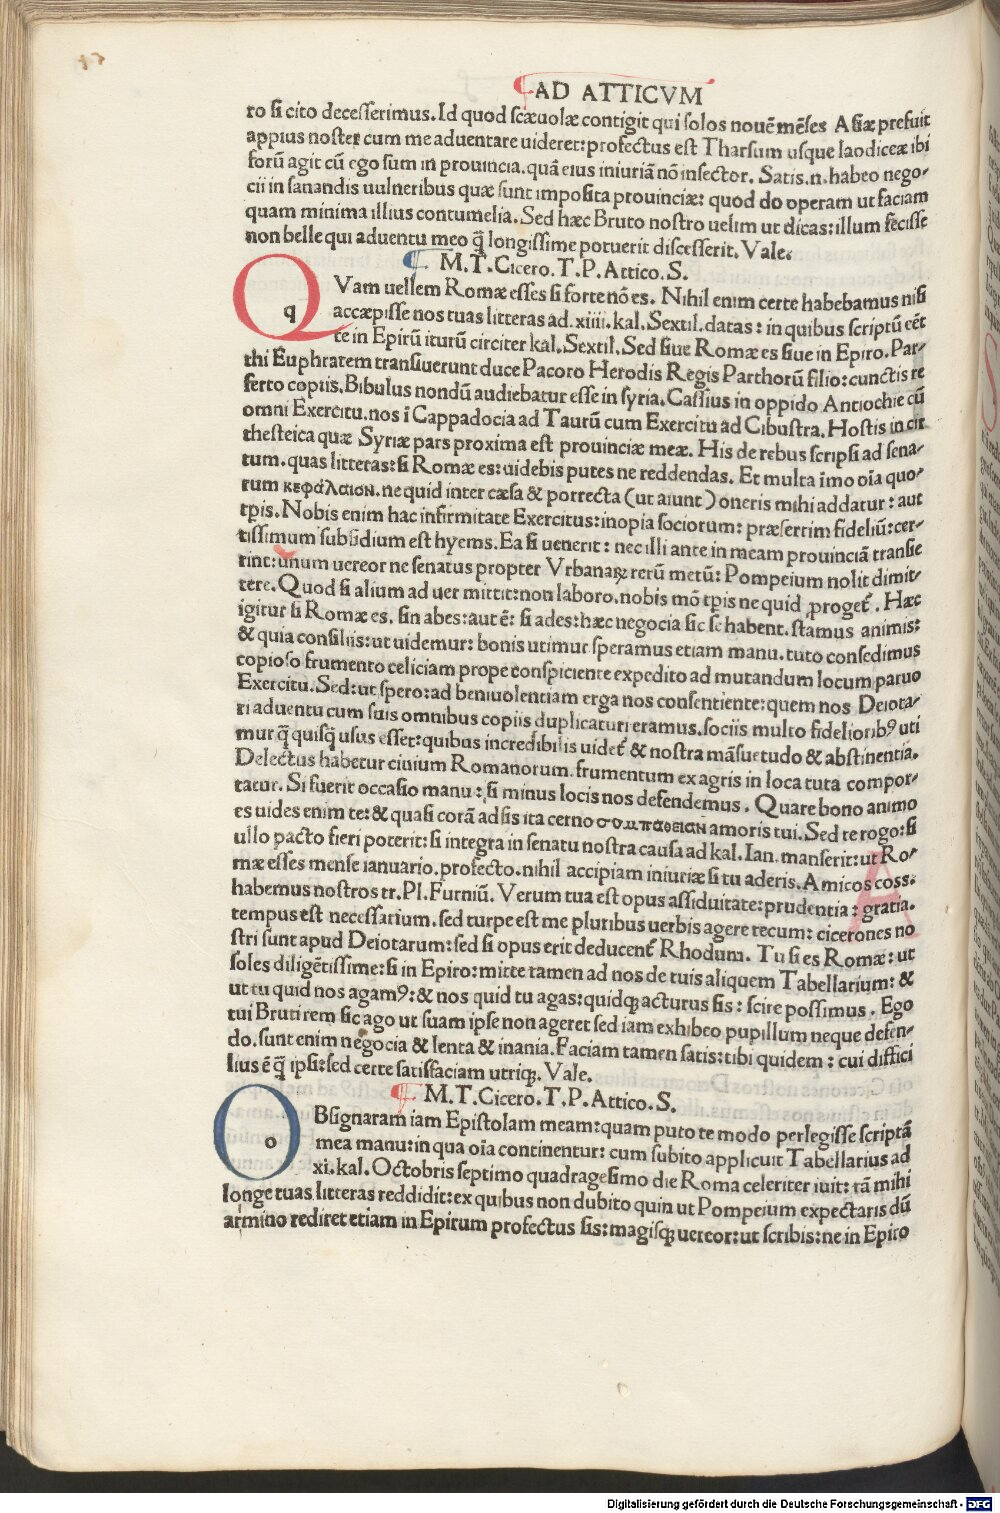 AD ATTICVM
ro si cito decesserimus. Id quod scæuolæ contigit qui solos nouē mēses Asiæ prefuit
appius noster cum me aduentare uideret: profectus est Tharsum usque laodiceæ ibi
forū agit cū ego sum in prouincia. quā eius iniuriā nō insector. Satis.n.habeo nego-
cii in sanandis uulneribus quæ sunt imposita prouinciæ: quod do operam ut faciam
quam minima illius contumelia. Sed hæc Bruto nostro uelim ut dicas: illum fecisse
non belle qui aduentu meo q̄ longissime potuerit discesserit. Vale.
M.T.Cicero.T.P.Attico.S.
Q
q
Vam uellem Romæ esses si forte nō es. Nihil enim certe habebamus nisi
accæpisse nos tuas litteras ad.xiiii.kal.Sextil.datas: in quibus scriptū eēt
te in Epirū iturū circiter kal.Sextil. Sed siue Romæ es siue in Epiro. Par-
thi Euphratem transiuerunt duce Pacoro Herodis Regis Parthorū filio: cunctis re
ferto copiis. Bibulus nondū audiebatur esse in syria. Cassius in oppido Antiochie cū
omni Exercitu. nos ī Cappadocia ad Taurū cum Exercitu ad Cibustra. Hostis in cir
thesteica quæ Syriæ pars proxima est prouinciæ meæ. His de rebus scripsi ad sena-
tum. quas litteras: si Romæ es: uidebis putes ne reddendas. Et multa īmo oīa quo-
rum κεφάλαιον. ne quid inter cæsa & porrecta (ut aiunt) oneris mihi addatur: aut
tpis. Nobis enim hac infirmitate Exercitus: inopia sociorum: præsertim fideliū: cer-
tissimum subsidium est hyems. Ea si uenerit: nec illi ante in meam prouinciā transie
rint: unum uereor ne senatus propter Vrbanaꝝ rerū metū: Pompeium nolit dimit-
tere. Quod si alium ad uer mittit: non laboro. nobis mō tpis ne quid ꝓroget̄. Hæc
igitur si Romæ es. sin abes: aut ē: si ades: hæc negocia sic se habent. stamus animis:
& quia consiliis: ut uidemur: bonis utimur speramus etiam manu. tuto consedimus
copioso frumento celiciam prope conspiciente expedito ad mutandum locum paruo
Exercitu. Sed: ut spero: ad beniuolentiam erga nos consentiente: quem nos Deiota-
ri aduentu cum suis omnibus copiis duplicaturi eramus. sociis multo fideliorib9 uti
mur q̄ quisq̄ usus esset: quibus incredibilis uidet̄ & nostra māsuetudo & abstinentia.
Delectus habetur ciuium Romanorum. frumentum ex agris in loca tuta compor-
tatur. Si fuerit occasio manu: si minus locis nos defendemus. Quare bono animo
es uides enim te: & quasi corā adsis ita cerno συμπαθειαν amoris tui. Sed te rogo: si
ullo pacto fieri poterit: si integra in senatu nostra causa ad kal. Ian. manserit: ut Ro-
mæ esses mense ianuario. profecto. nihil accipiam iniuriæ si tu aderis. Amicos coss.
habemus nostros tr. Pl. Furniū. Verum tua est opus assiduitate: prudentia: gratia.
tempus est necessarium. sed turpe est me pluribus uerbis agere tecum: cicerones no
stri sunt apud Deiotarum: sed si opus erit deducent̄ Rhodum. Tu si es Romæ: ut
soles diligētissime: si in Epiro: mitte tamen ad nos de tuis aliquem Tabellarium: &
ut tu quid nos agam9: & nos quid tu agas: quidqꝫ acturus sis: scire possimus. Ego
tui Bruti rem sic ago ut suam ipse non ageret sed iam exhibeo pupillum neque defen-
do. sunt enim negocia & lenta & inania. Faciam tamen satis: tibi quidem: cui diffici
lius ē q̄ ipsi: sed certe satisfaciam utriqꝫ. Vale.
M.T.Cicero.T.P.Attico.S.
O
o
Bsignaram iam Epistolam meam: quam puto te modo perlegisse scriptā
mea manu: in qua oīa continentur: cum subito applicuit Tabellarius ad
xi.kal.Octobris septimo quadragesimo die Roma celeriter iuit: tā mihi
longe tuas litteras reddidit: ex quibus non dubito quin ut Pompeium expectaris dū
armino rediret etiam in Epirum profectus sis: magisqꝫ uereor: ut scribis: ne in Epiro
Digitalisierung gefördert durch die Deutsche Forschungsgemeinschaft - DFG